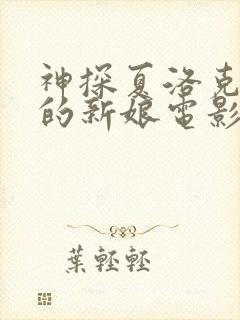 神探夏洛克
的新娘電影
葉輕輕